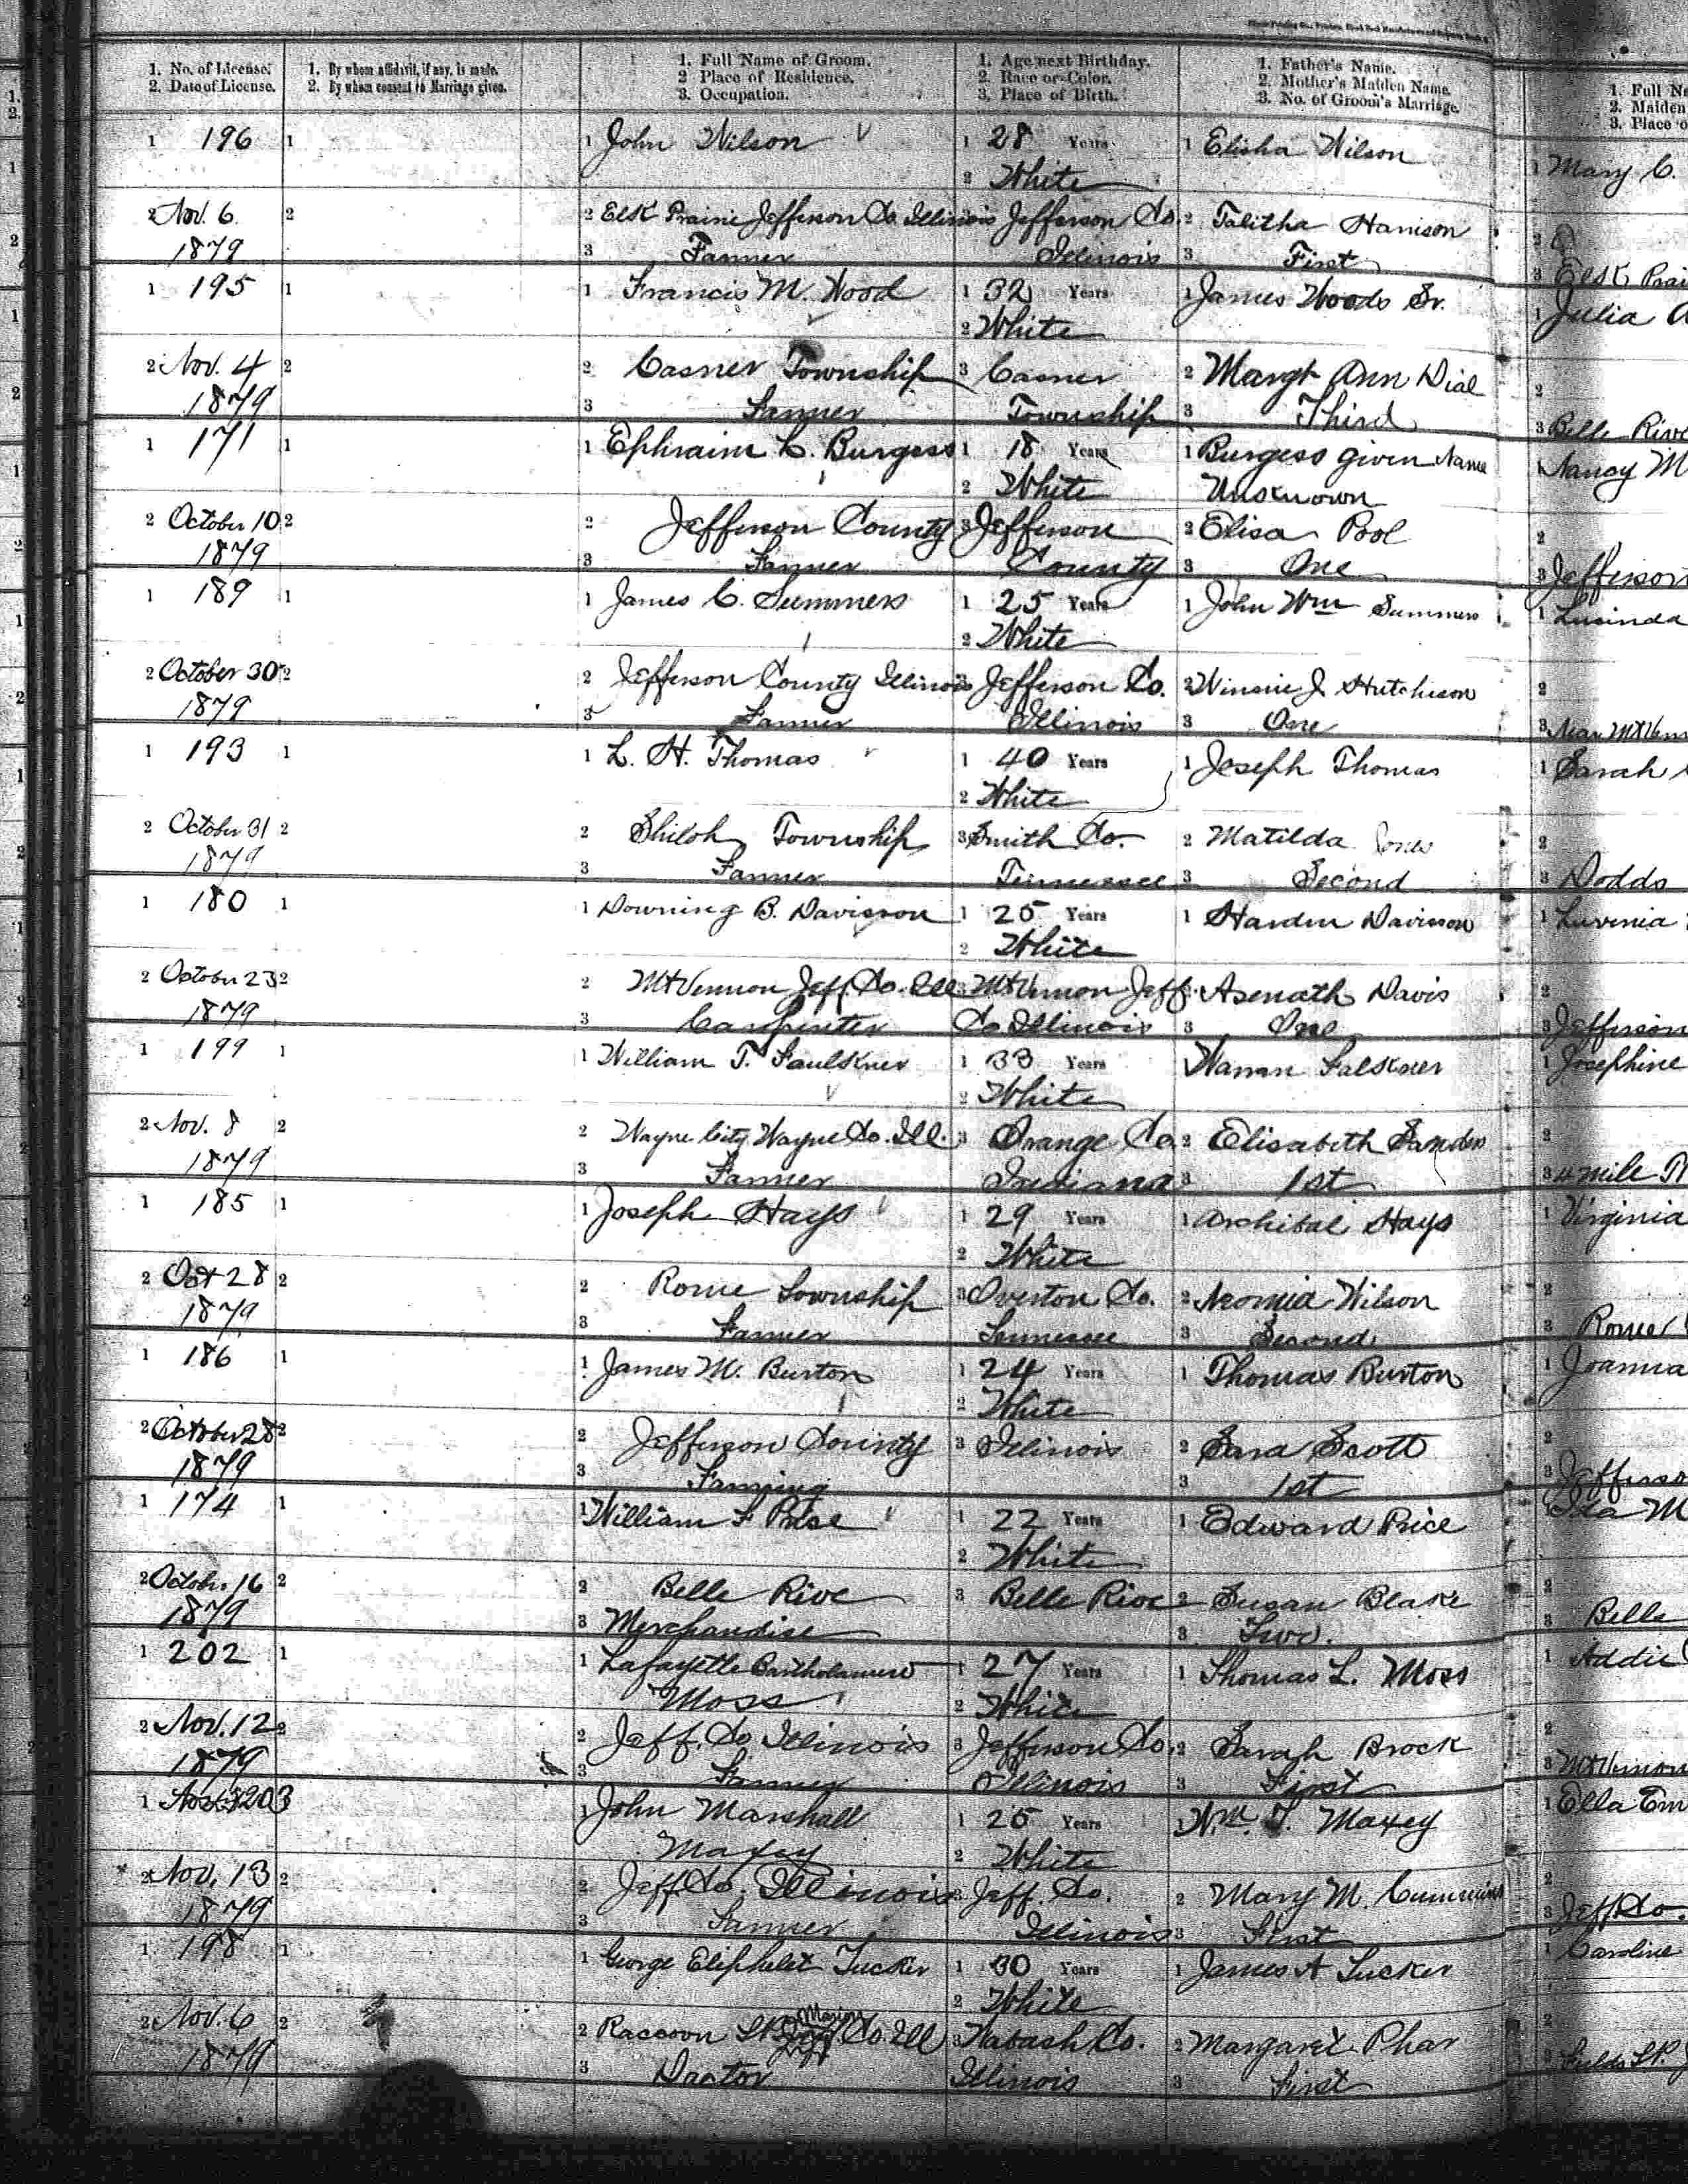 1. No. of License.
2. Date of License.
1. By whom affidavit, if any, is made.
2. By whom consent to Marriage given.
1. Full Name of Groom.
2 Place of Residence.
3. Occupation.
1. Age next Birthday.
2. Race or Color.
3. Place of Birth.
1. Father's Name.
2. Mother's Maiden Name.
3. No. of Groom's Marriage.
1. Full Na
2. Maiden
3. Place o
1 196 1 1 John Wilson 1 28 Years 1 Elisha Wilson 1 Mary C.
2 White
2 Nov. 6 2 2 Elk Prairie Jefferson Co. Illinois Jefferson Co. 2 Talitha Harrison 2
1879 3 Farmer Illinois 3 First 3 Elk Prai
1 195 1 1 Francis M. Wood 1 32 Years 1 James Woods Sr. 1 Julia A
2 White
2 Nov. 4 2 2 Casner Township 3 Casner 2 Margt Ann Dial 2
1879 3 Farmer Township 3 Third 3 Belle Rive
1 171 1 1 Ephraim L. Burgess 1 18 Years 1 Burgess given Name 1 Nancy M
2 White Unknown
2 October 10 2 2 Jefferson County 3 Jefferson 2 Elisa Pool 2
1879 3 Farmer County 3 One 3 Jefferson
1 189 1 1 James C. Summers 1 25 Years 1 John Wm Summers 1 Lucinda
2 White
2 October 30 2 2 Jefferson County Illinois Jefferson Co. 2 Winnie J Hutchison 2
1879 3 Farmer Illinois 3 One 3 Near Mt Vern
1 193 1 1 L. H. Thomas 1 40 Years 1 Joseph Thomas 1 Sarah
2 White
2 October 31 2 2 Shiloh Township 3 Smith Co. 2 Matilda Jones 2
1879 3 Farmer Tennessee 3 Second 3 Dodds
1 180 1 1 Downing B. Davisson 1 25 Years 1 Harden Davisson 1 Luvenia
2 White
2 October 23 2 2 Mt Vernon Jeff. Co. Ill 3 Mt Vernon Jeff. Asenath Davis 2
1879 3 Carpenter Co Illinois 3 One 3 Jefferson
1 199 1 1 William T. Faulkner 1 33 Years Warren Falkner 1 Josephine
2 White
2 Nov. 8 2 2 Wayne City Wayne Co. Ill. 3 Orange Co 2 Elisabeth Sanders 2
1879 3 Farmer Indiana 3 1st 3 4 mile
1 185 1 1 Joseph Hays 1 29 Years 1 Archibal Hays 1 Virginia
2 White
2 Oct 28 2 2 Rome Township 3 Overton Co. 2 Neomia Wilson 2
1879 3 Farmer Tennessee 3 Second 3 Rome
1 186 1 1 James M. Burton 1 24 Years 1 Thomas Burton 1 Joanna
2 White
2 October 28 2 2 Jefferson County 3 Illinois 2 Sara Scott 2
1879 3 Farming 3 1st 3 Jefferso
1 174 1 1 William F Price 1 22 Years 1 Edward Price Ida M
2 White
2 October 16 2 2 Belle Rive 3 Belle Rive 2 Susan Blake 2
1879 3 Merchandise 3 Two. 3 Belle
1 202 1 1 Lafayette Bartholamew 1 27 Years 1 Thomas L. Moss 1 Addie
Moss 2 White
2 Nov. 12 2 2 Jeff. Co Illinois 3 Jefferson Co. 2 Sarah Brock 2
1879 3 Farmer Illinois 3 First 3 Mt Vernon
1 203 1 John Marshall 1 25 Years 1 Wm. T. Maxey 1 Ella Em
Maxey 2 White
2 Nov. 13 2 2 Jeff Co. Illinois 3 Jeff. Co. 2 Mary M. Cummins 2
1879 3 Farmer Illinois 3 First 3 Jeff. Co.
1 198 1 1 George Eliphelet Tucker 1 30 Years 1 James A Tucker 1 Caroline
2 White
Marion
2 Nov. 6 2 2 Raccoon Co. Ill 3 Wabash Co. 2 Margaret Phar 2
1879 3 Doctor Illinois 3 First